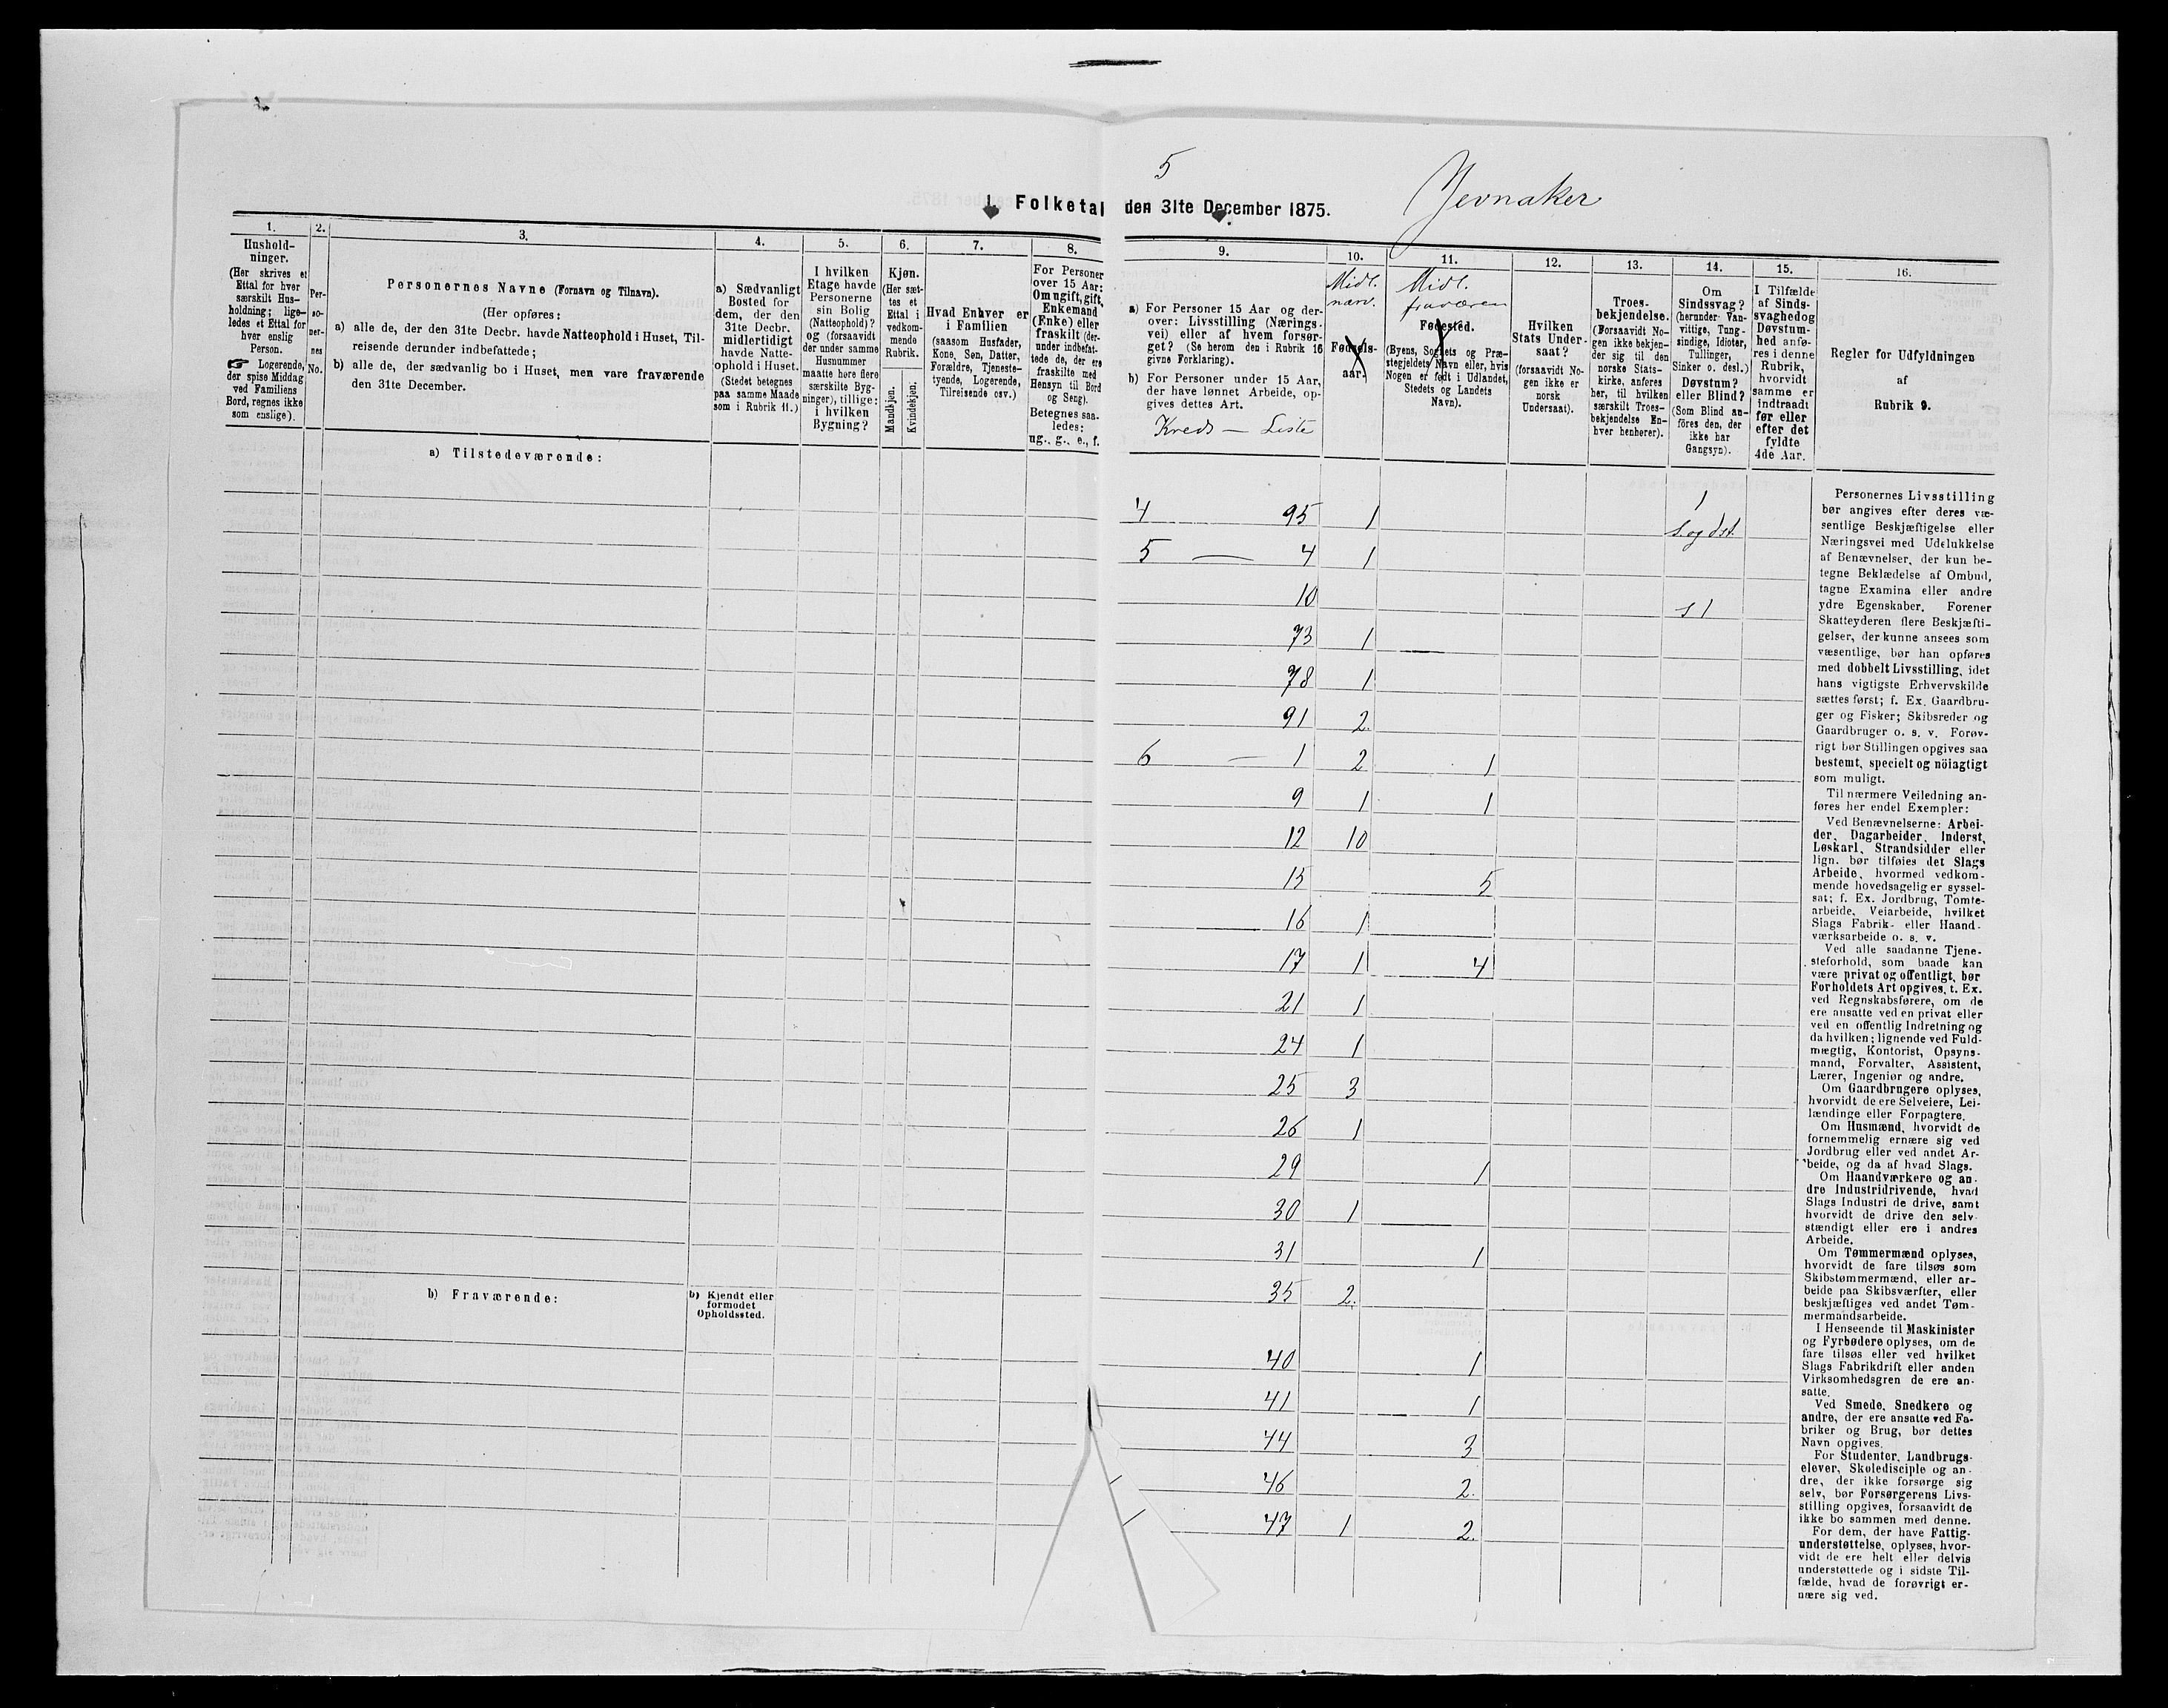 5
Jevnaker
I. Folketal den 31te December 1875.
1.
Hushold-
ninger.
(Her skrives et
Ettal for hver
særskilt Hus-
holdning; lige-
ledes et Ettal for
hver enslig
Person.
☞ Logerende,
der spise Middag
ved Familiens
Bord, regnes ikke
som enslige).
2.
Per-
so-
ner-
nes
No.
3.
Personernes Navne (Fornavn og Tilnavn).
(Her opføres:
a) alle de, der den 31te Decbr. havde Natteophold i Huset, Til-
reisende derunder indbefattede;
b) alle de, der sædvanlig bo i Huset, men vare fraværende
den 31te December.
4.
a) Sædvanligt
Bosted for
dem, der den
31te Decbr.
midlertidigt
havde Natte-
ophold i Huset.
(Stedet betegnes
paa samme Maade
som i Rubrik 11.)
5.
I hvilken
Etage havde
Personerne
sin Bolig
(Natteophold)?
og (forsaavidt
der under samme
Husnummer
maatte høre flere
særskilte Byg-
ninger), tillige:
i hvilken
Bygning?
6.
Kjøn.
(Her sæt-
tes et
Ettal i
vedkom-
mende
Rubrik.
Mandkjøn.
Kvindekjøn.
7.
Hvad Enhver er
i Familien
(saasom Husfader,
Kone, Søn, Datter,
Forældre, Tjeneste-
tyende, Logerende,
Tilreisende osv.)
8.
For Personer
over 15 Aar:
Om ugift, gift,
Enkemand
(Enke) eller
fraskilt (der-
under indbefat-
tede de, der ere
fraskilte med
Hensyn til Bord
og Seng).
Betegnes saa-
ledes:
ug., g., e., f.
9.
a) For Personer 15 Aar og der-
over: Livsstilling (Nærings-
vei) eller af hvem forsør-
get? (Se herom den i Rubrik 16
givne Forklaring).
b) For Personer under 15 Aar,
der have lønnet Arbeide, op-
gives dettes Art.
Kreds — Liste
10.
Midl.
nærv.
Fødsels-
aar.
11.
Midl.
fraværen
Fødested.
(Byens, Sognets og Præ-
stegjeldets Navn eller, hvis
Nogen er født i Udlandet,
Stedets og Landets
Navn).
12.
Hvilken
Stats Under-
saat?
(forsaavidt No-
gen ikke er
norsk
Undersaat).
13.
Troes-
bekjendelse.
(Forsaavidt No-
gen ikke bekjen-
der sig til den
norske Stats-
kirke, anføres
her, til hvilken
særskilt Troes-
bekjendelse En-
hver henhører).
14.
Om
Sindssvag?
(herunder Van-
vittige, Tung-
sindige, Idioter,
Tullinger,
Sinker o. desl.)
Døvstum?
eller Blind?
(Som Blind an-
føres den, der
ikke har
Gangsyn).
15.
I Tilfælde
af Sinds-
svaghed og
Døvstum-
hed anfø-
res i denne
Rubrik,
hvorvidt
samme er
indtraadt
før eller
efter det
fyldte
4de Aar.
16.
Regler for Udfyldningen
af
Rubrik 9.
a) Tilstedeværende:
1
4 95 1 S. og dst.
5 — 4 1
10 s 1
73 1
78 1
91 2.
6 — 1 2 1
9 1 1
12 10
15 5
16 1
17 1 4
21 1
24 1
25 3
26 1
29 1
30 1
31 1
35 2.
b) Fraværende:
b) Kjendt eller
formodet
Opholdssted.
40 1
41 1
44 3
46 2.
47 1 2.
Personernes Livsstilling
bør angives efter deres væ-
sentlige Beskjæftigelse eller
Næringsvei med Udelukkelse
af Benævnelser, der kun be-
tegne Beklædelse af Ombud,
tagne Examina eller andre
ydre Egenskaber. Forener
Skatteyderen flere Beskjæfti-
gelser, der kunne ansees som
væsentlige, bør han opføres
med dobbelt Livsstilling, idet
hans vigtigste Erhvervskilde
sættes først; f. Ex. Gaardbru-
ger og Fisker; Skibsreder og
Gaardbruger o. s. v. Forøv-
rigt bør Stillingen opgives saa
bestemt, specielt og nöiagtigt
som muligt.
Til nærmere Veiledning an-
føres her endel Exempler:
Ved Benævnelserne: Arbei-
der, Dagarbeider, Inderst,
Løskarl, Strandsidder eller
lign. bør tilføies det Slags
Arbeide, hvormed vedkom-
mende hovedsagelig er syssel-
sat; f. Ex. Jordbrug, Tomte-
arbeide, Veiarbeide, hvilket
Slags Fabrik- eller Haand-
værksarbeide o. s. v.
Ved alle saadanne Tjene-
steforhold, som baade kan
være privat og offentligt, bør
Forholdets Art opgives, t. Ex.
ved Regnskabsførere, om de
ere ansatte ved en privat eller
ved en offentlig Indretning og
da hvilken; lignende ved Fuld-
mægtig, Kontorist, Opsyns-
mand, Forvalter, Assistent,
Lærer, Ingeniør og andre.
Om Gaardbrugere oplyses,
hvorvidt de ere Selveiere, Lei-
lændinge eller Forpagtere.
Om Husmænd, hvorvidt de
fornemmelig ernære sig ved
Jordbrug eller ved andet Ar-
beide, og da af hvad Slags.
Om Haandværkere og an-
dre Industridrivende, hvad
Slags Industri de drive, samt
hvorvidt de drive den selv-
stændigt eller ere i andres
Arbeide.
Om Tømmermænd oplyses,
hvorvidt de fare tilsøs som
Skibstømmermænd, eller ar-
beide paa Skibsværfter, eller
beskjæftiges ved andet Tøm-
mermandsarbeide.
I Henseende til Maskinister
og Fyrbødere oplyses, om de
fare tilsøs eller ved hvilket
Slags Fabrikdrift eller anden
Virksomhedsgren de ere an-
satte.
Ved Smede, Snedkere og
andre, der ere ansatte ved Fa-
briker og Brug, bør dettes
Navn opgives.
For Studenter, Landbrugs-
elever, Skoledisciple og an-
dre, der ikke forsørge sig
selv, bør Forsørgerens Livs-
stilling opgives, forsaavidt de
ikke bo sammen med denne.
For dem, der have Fattig-
understøttelse, oplyses, hvor-
vidt de ere helt eller delvis
understøttede og i sidste Til-
fælde, hvad de forøvrigt er-
nære sig ved.